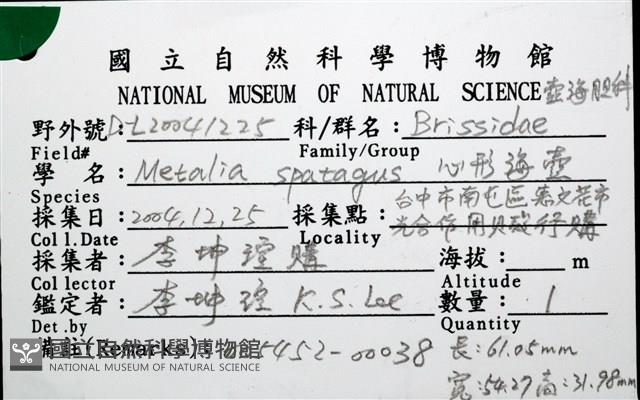 國立自然科學博物館
NATIONAL MUSEUM OF NATURAL SCIENCE 壺海胆科
野外號: D-L20041225 科/群名: Brissidae
Field# Family/Group
學 名: Metalia spatagus 心形海壺
Species 台中市南屯區惠文花市
採集日: 2004,12,25 採集點: 光合作用貝殼行購
Coll.Date Locality
採集者: 李坤瑄購 海拔: m
Collector Altitude
鑑定者: 李坤瑄 K.S. Lee 數量: 1
Det.by Quantity
備註(Remarks): 5452-00038 長:61.05mm
國立自然科學博物館
NATIONAL MUSEUM OF NATURAL SCIENCE
寬:54.27 高:31.98mm